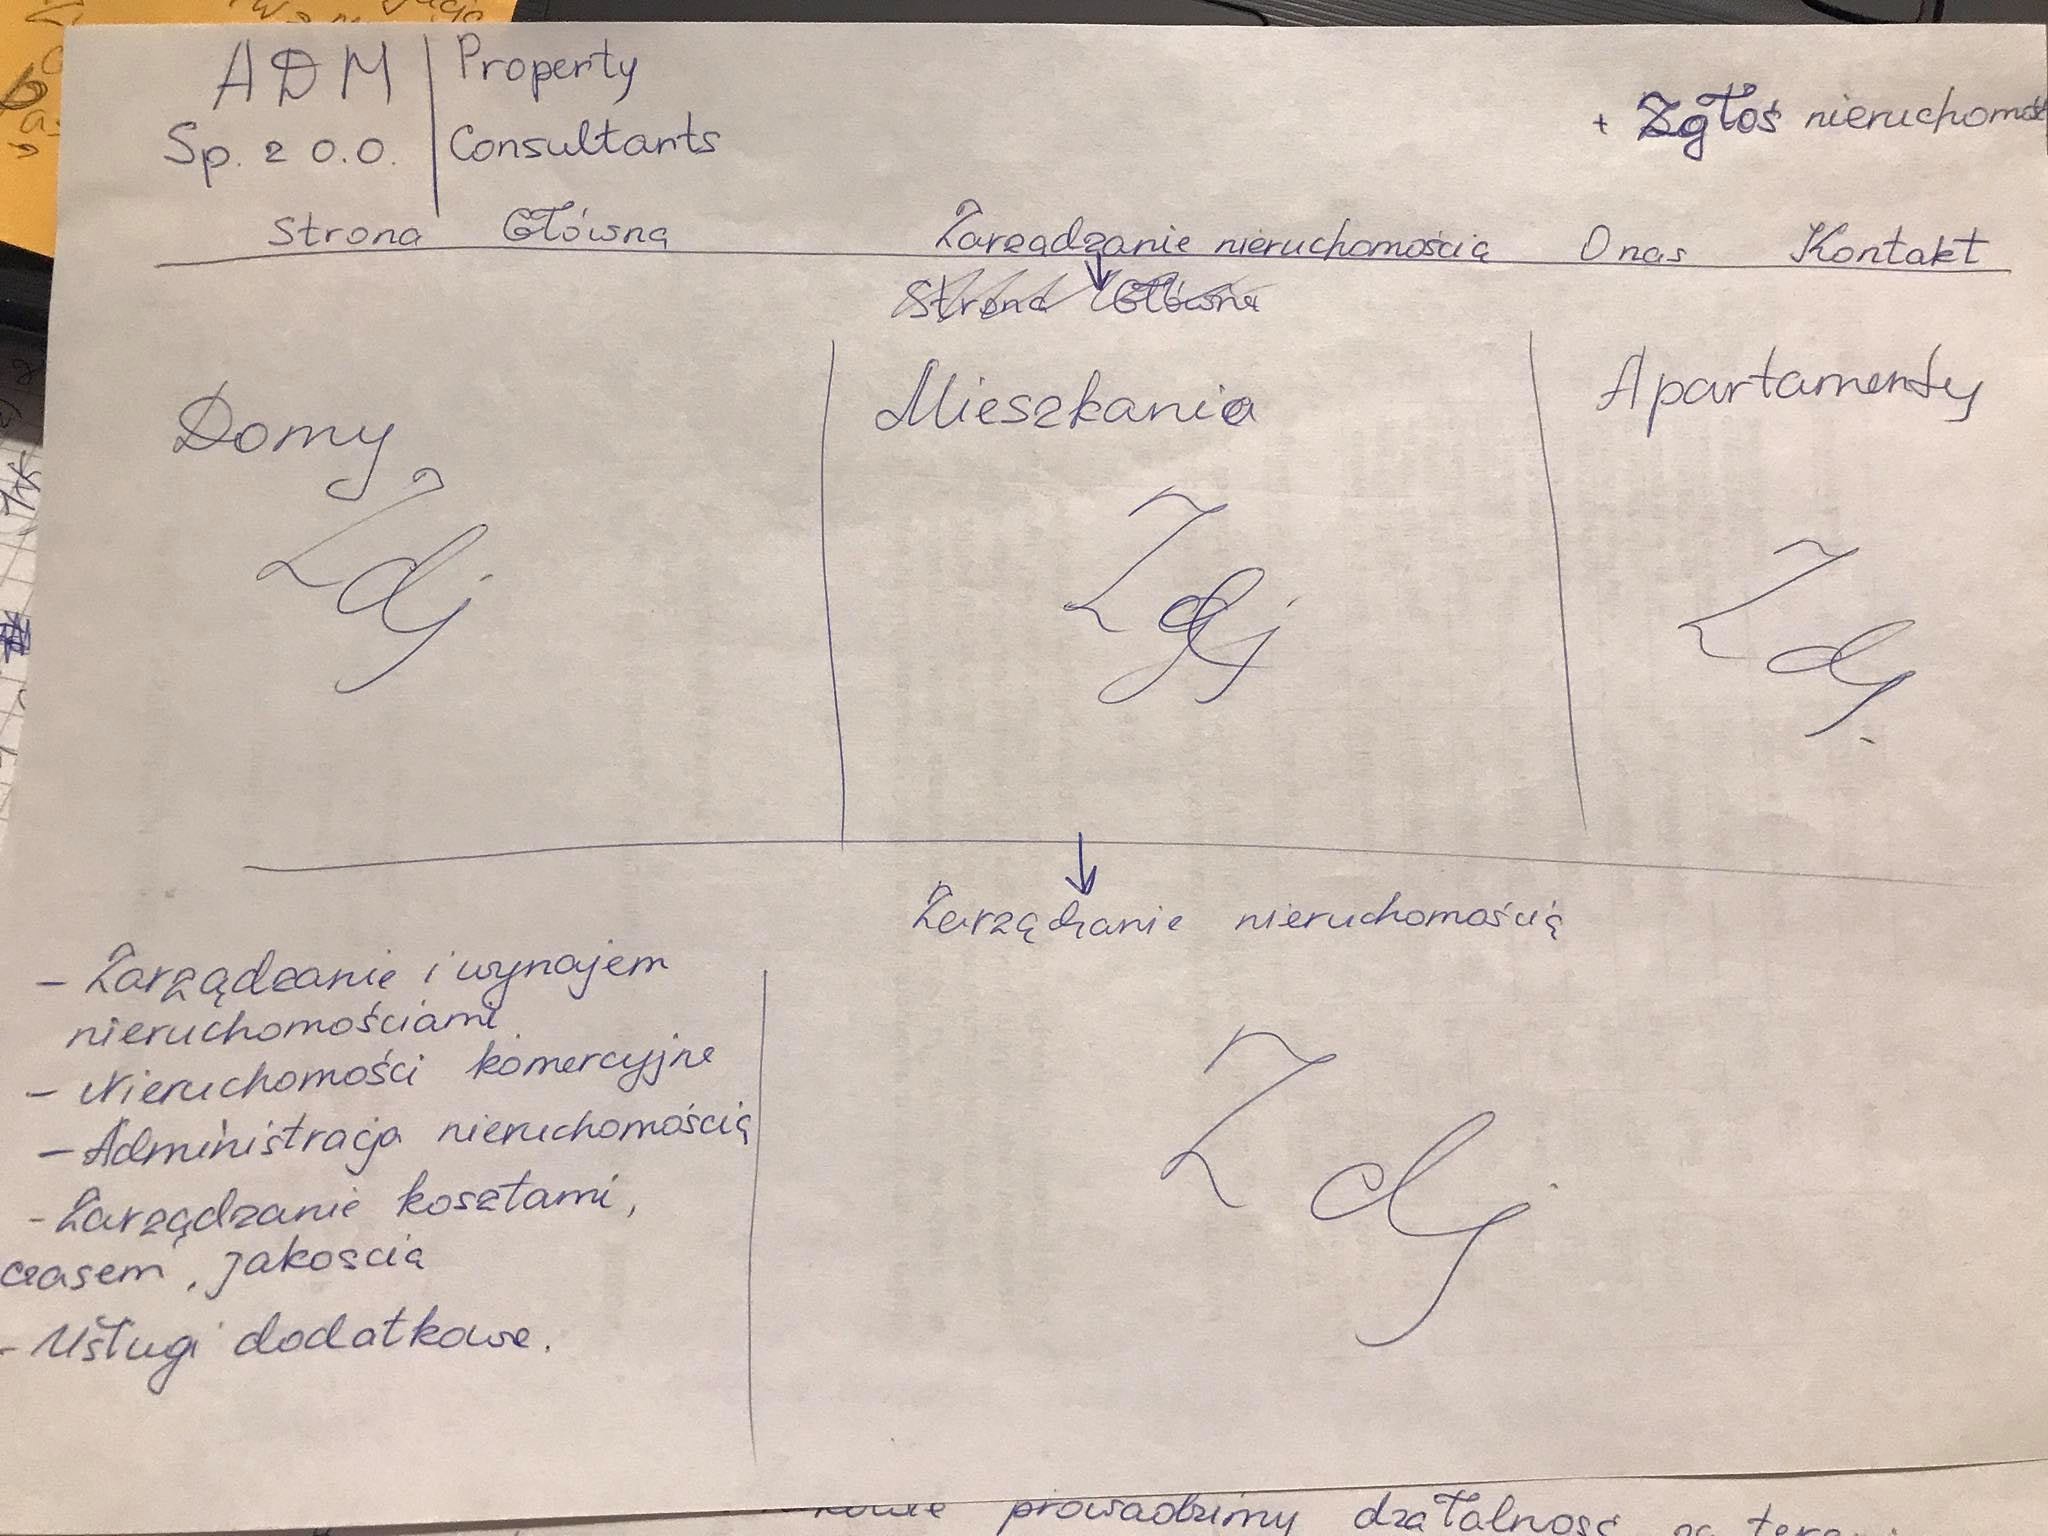 ADM | Property
Sp. z o.o. | Consultants
+ Zgłoś nieruchomość
Strona Główna Zarządzanie nieruchomością O nas Kontakt
Strona Główna
Domy Mieszkania Apartamenty
Zdj Zdj Zdj
Zarządzanie nieruchomością
- Zarządzanie i wynajem
nieruchomościami
- Nieruchomości komercyjne
- Administracja nieruchomością
- Zarządzanie kosztami,
czasem, jakoscią
- Usługi dodatkowe.
Zdj
prowadzimy działalność